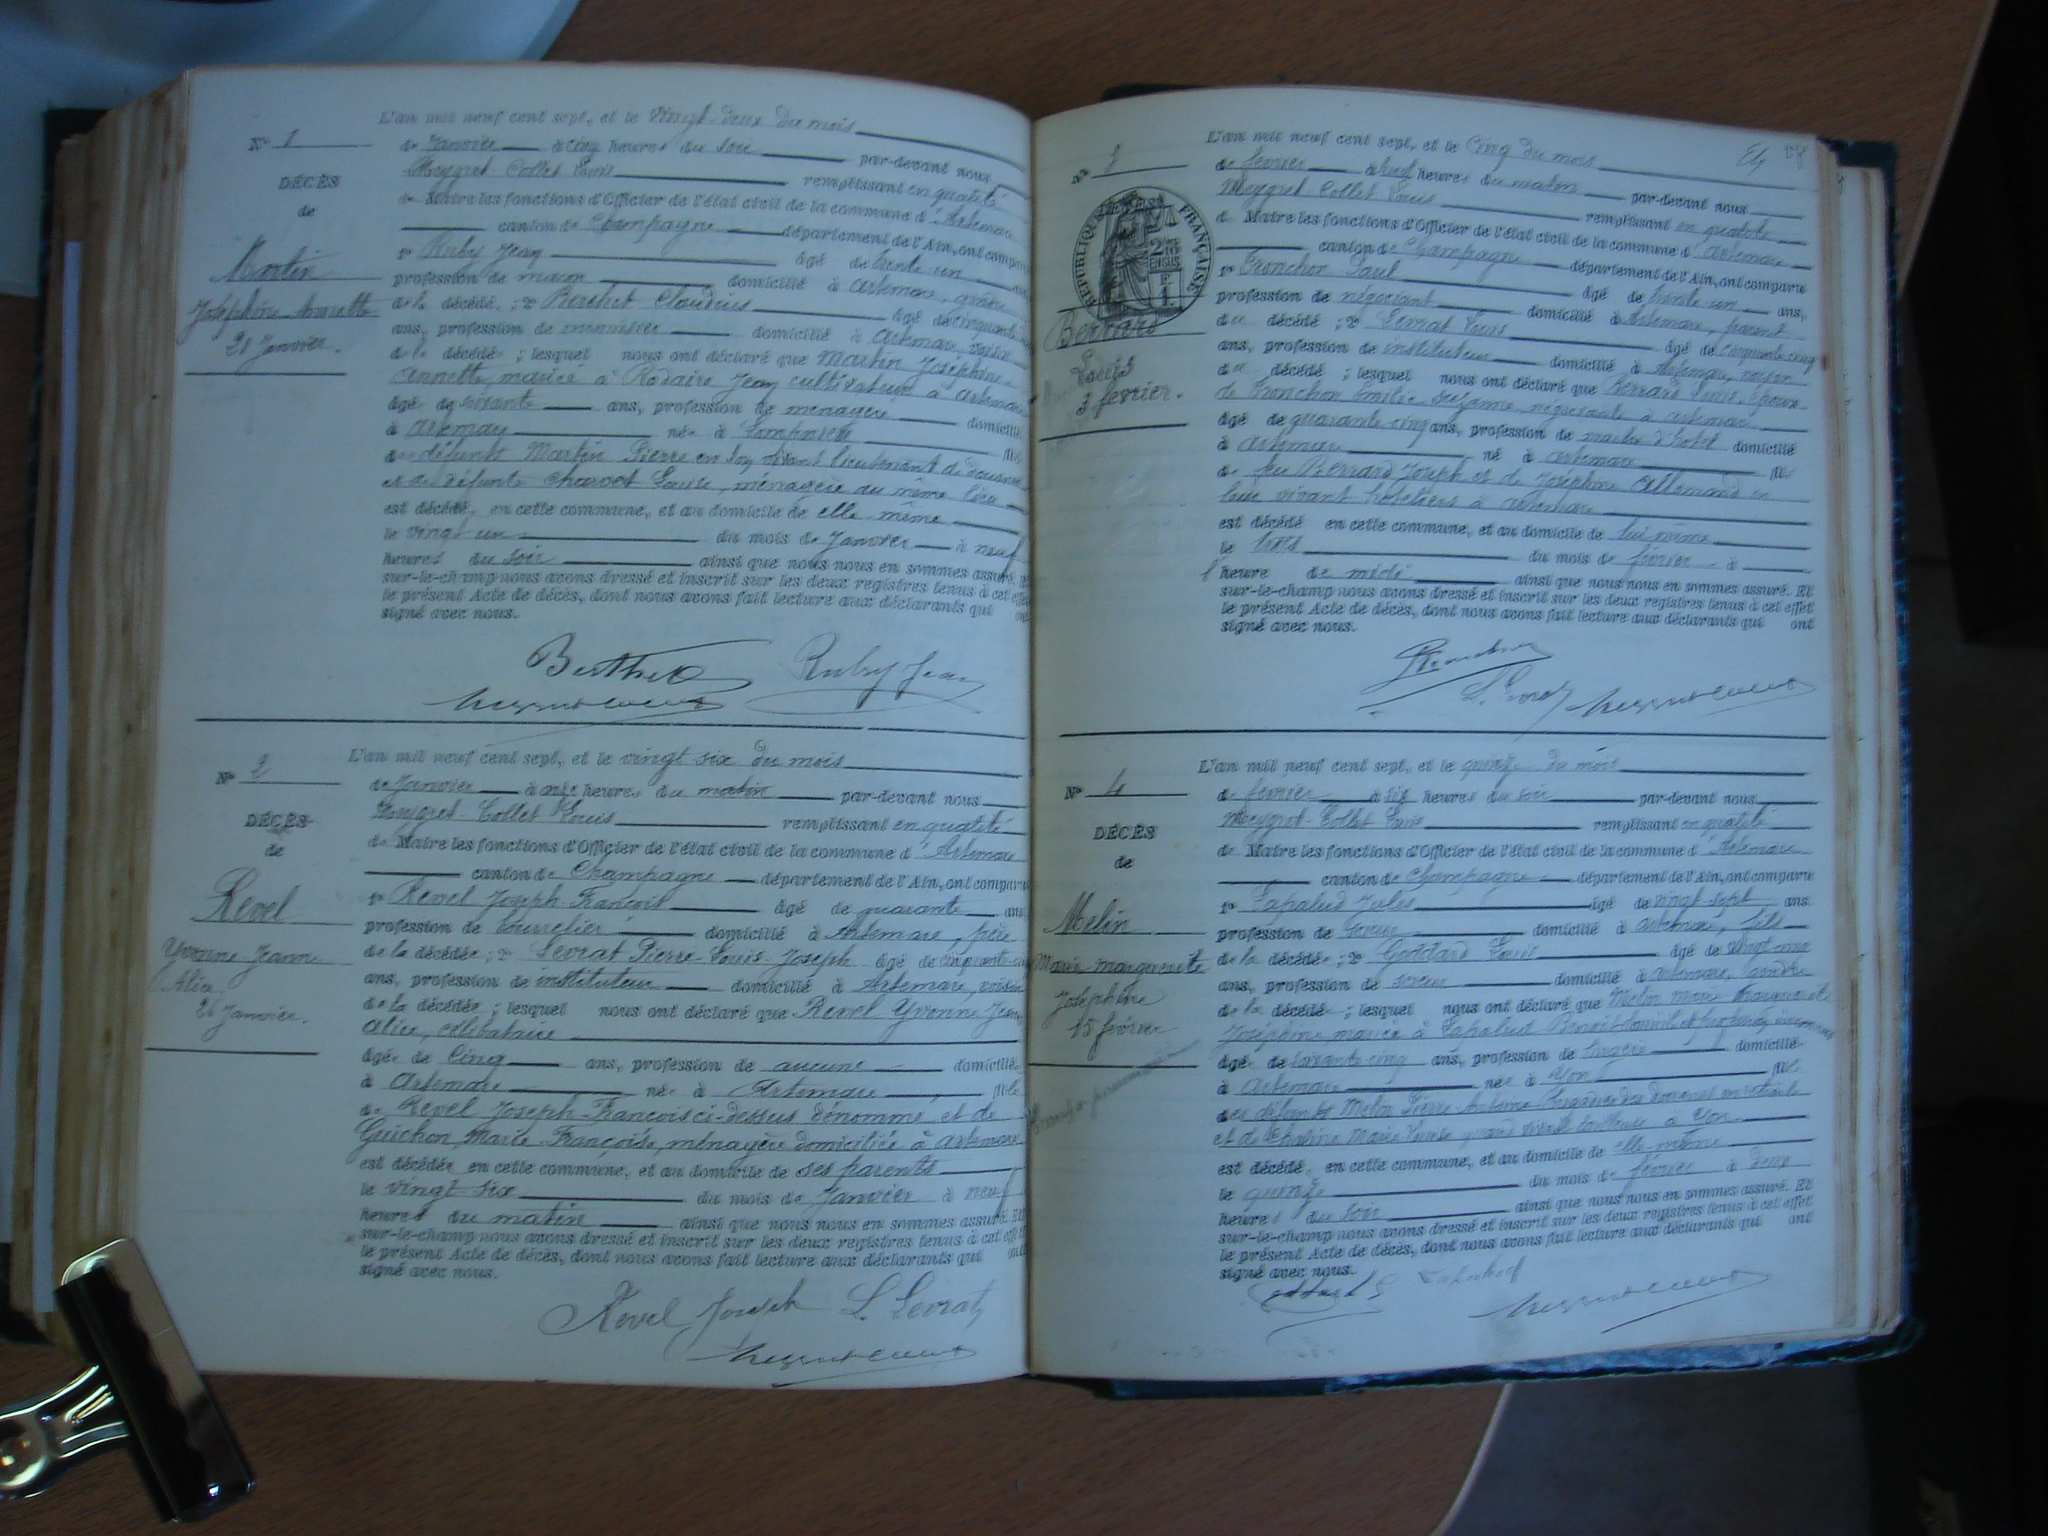 L'an mil neuf cent sept, et le vingt-deux du mois
N° 1
de Janvier à cinq heures du soir par-devant nous
DÉCÈS
Meygret-Collet Louis remplissant en qualité
de
de Maire les fonctions d'Officier de l'état civil de la commune d'Artemare
canton de Champagne département de l'Ain, ont comparu
Martin
1° Ruby Jean âgé de trente un ans
profession de maçon domicilié à Artemare,
Joséphine Annette
de la décédée ; 2° Berthet Claudius âgé de cinquante
21 Janvier.
ans, profession de menuisier domicilié à Artemare, voisin
de la décédée ; lesquels nous ont déclaré que Martin Joséphine
Annette, mariée à Rodaire Jean cultivateur à Artemare
âgée de soixante ans, profession de ménagère domiciliée
à Artemare née à fille
de défunts Martin Pierre en son vivant lieutenant de douanes
et de défunte Charvet Louise, ménagère au même lieu
est décédée en cette commune, et au domicile de elle-même
le vingt un du mois de Janvier à neuf
heures du soir ainsi que nous nous en sommes assuré. Et
sur-le-champ nous avons dressé et inscrit sur les deux registres tenus à cet effet
le présent Acte de décès, dont nous avons fait lecture aux déclarants qui ont
signé avec nous.
Berthet Ruby Jean
L'an mil neuf cent sept, et le vingt six du mois
N° 2
de Janvier à onze heures du matin par-devant nous
DÉCÈS
Meygret-Collet Louis remplissant en qualité
de
de Maire les fonctions d'Officier de l'état civil de la commune d'Artemare
canton de Champagne département de l'Ain, ont comparu
Revel
1° Revel Joseph François âgé de quarante ans
profession de bourrelier domicilié à Artemare, père
Yvonne Jeanne
de la décédée ; 2° Levrat Pierre-Louis-Joseph âgé de cinquante-cinq
Alice
ans, profession de instituteur domicilié à Artemare, voisin
26 Janvier.
de la décédée ; lesquels nous ont déclaré que Revel Yvonne Jeanne
Alice, célibataire
âgée de cinq ans, profession de aucune domiciliée
à Artemare née à Artemare fille
de Revel Joseph-François ci-dessus dénommé et de
Guichon Marie Françoise, ménagère domiciliée à Artemare
est décédée en cette commune, et au domicile de ses parents
le vingt six du mois de Janvier à neuf
heures du matin ainsi que nous nous en sommes assuré. Et
sur-le-champ nous avons dressé et inscrit sur les deux registres tenus à cet effet
le présent Acte de décès, dont nous avons fait lecture aux déclarants qui ont
signé avec nous.
Revel Joseph L. Levrat
L'an mil neuf cent sept, et le cinq du mois
N° 3
de février à huit heures du matin par-devant nous
Meygret-Collet Louis remplissant en qualité
RÉPUBLIQUE FRANÇAISE
de Maire les fonctions d'Officier de l'état civil de la commune d'Artemare
canton de Champagne département de l'Ain, ont comparu
1° Tronchon Paul âgé de trente un ans,
profession de négociant domicilié à Artemare, parent
Bernard
du décédé ; 2° Levrat Louis âgé de cinquante-cinq
ans, profession de instituteur domicilié à Artemare, voisin
Louis
du décédé ; lesquels nous ont déclaré que Bernard Louis, époux
3 février.
de Tronchon Emilie Suzanne, négociante à Artemare
âgé de quarante-cinq ans, profession de maître d'hôtel domicilié
à Artemare né à Artemare fils
de feu Bernard Joseph et de Joséphine Allemand en
leur vivant hôteliers à Artemare
est décédé en cette commune, et au domicile de lui même
le trois du mois de février à
l'heure de midi ainsi que nous nous en sommes assuré. Et
sur-le-champ nous avons dressé et inscrit sur les deux registres tenus à cet effet
le présent Acte de décès, dont nous avons fait lecture aux déclarants qui ont
signé avec nous.
L. Levrat
L'an mil neuf cent sept, et le quinze du mois
N° 4
de février à six heures du soir par-devant nous
DÉCÈS
Meygret-Collet Louis remplissant en qualité
de
de Maire les fonctions d'Officier de l'état civil de la commune d'Artemare
canton de Champagne département de l'Ain, ont comparu
1° Lapalud Jules âgé de vingt-sept ans
Melin
profession de domicilié à Artemare, fils
Marie Marguerite
de la décédée ; 2° Goddard Louis âgé de vingt-cinq
Joséphine
ans, profession de domicilié à Artemare, gendre
15 février
de la décédée ; lesquels nous ont déclaré que Melin Marie Marguerite
Joséphine mariée à Lapalud Benoit
âgée de soixante-cinq ans, profession de domiciliée
à Artemare née à Lyon fille
des défunts Melin Pierre Antoine
et de Marie Louise tailleuse à Lyon
est décédée en cette commune, et au domicile de elle même
le quinze du mois de février à deux
heures du soir ainsi que nous nous en sommes assuré. Et
sur-le-champ nous avons dressé et inscrit sur les deux registres tenus à cet effet
le présent Acte de décès, dont nous avons fait lecture aux déclarants qui ont
signé avec nous.
Lapalud